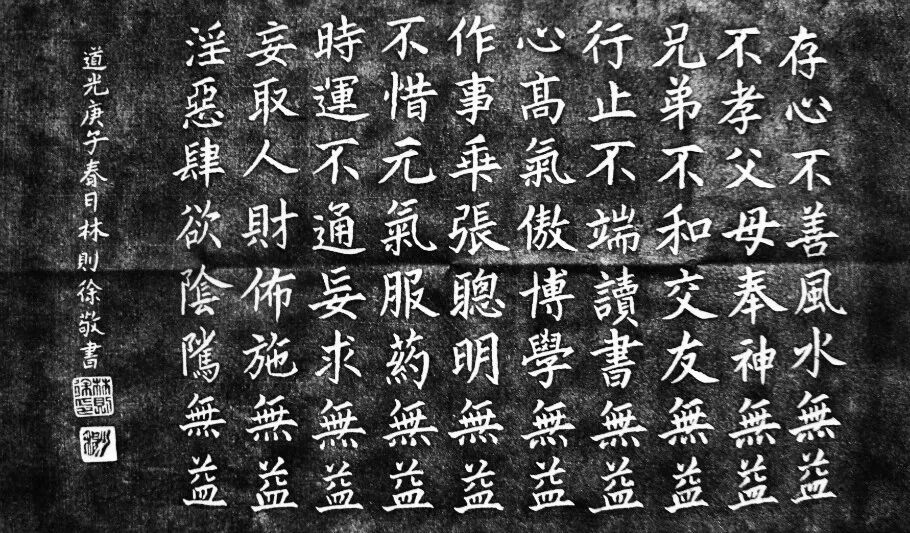 存心不善風水無益
不孝父母奉神無益
兄弟不和交友無益
行止不端讀書無益
心高氣傲博學無益
作事乖張聰明無益
不惜元氣服藥無益
時運不通妄求無益
妄取人財佈施無益
淫惡肆欲陰騭無益
道光庚午春日林則徐敬書